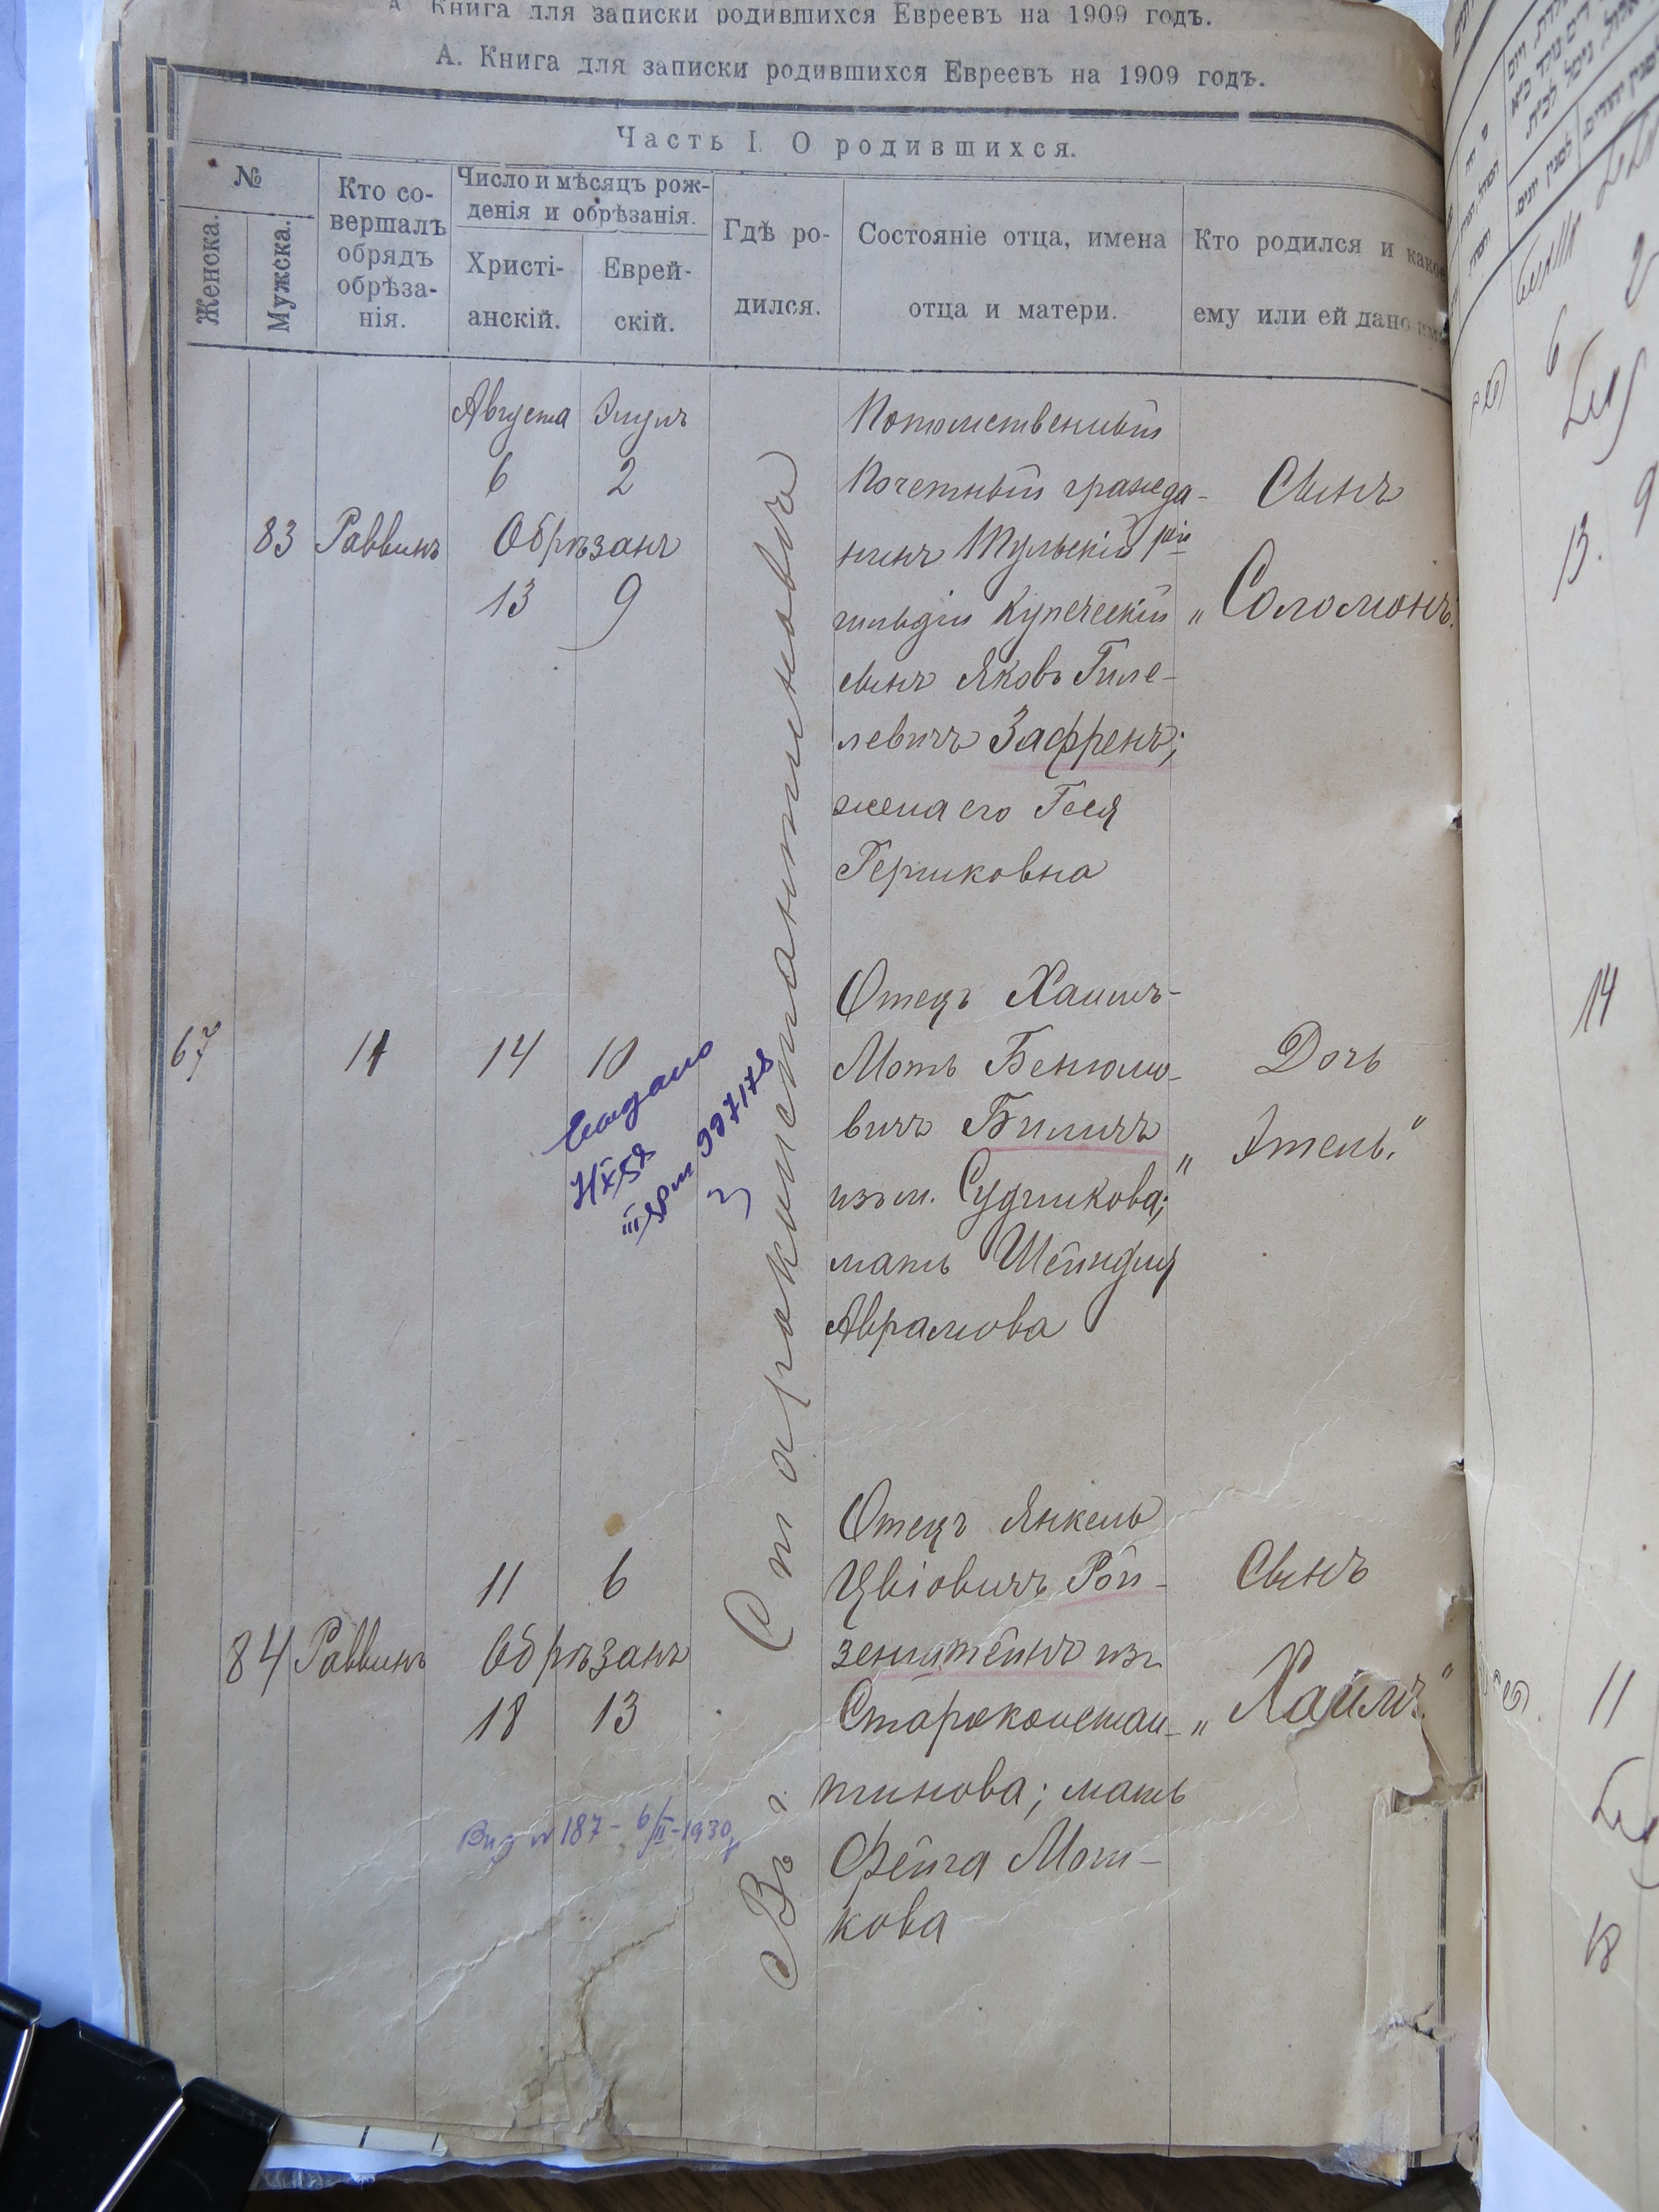 А Книга для записки родившихся Евреевъ на 1909 годъ.
А. Книга для записки родившихся Евреевъ на 1909 годъ.
Часть I. О родившихся.
№
Женска.
Мужска.
Кто со-
вершалъ
обрядъ
обрѣза-
нія.
Число и мѣсяцъ рож-
денія и обрѣзанія.
Христі-
анскій.
Еврей-
скій.
Гдѣ ро-
дился.
Состояніе отца, имена
отца и матери.
Кто родился и какое
ему или ей дано имя
83
Раввинъ
Августа Элулъ
6 2
Обрѣзанъ
13 9
Въ г. Староконстантиновѣ
Потомственный
Почетный гражда-
нинъ Тульскій 1й
гильдіи купеческій
сынъ Яковъ Гиле-
левичъ Зафренъ;
жена его Гися
Гершковна
Сынъ
„Соломонъ.
67
14 10
Выдано
997178
Отецъ Хаимъ-
Моть Бенюмо-
вичъ Биличъ
изъ м. Судилкова;
мать Шейндля
Абрамова
Дочь
„Этель.“
84 Раввинъ
11 6
Обрѣзанъ
18 13
Выд № 187 - 6/II-1930
Отецъ Янкель
Цвіовичъ Рой-
зенштейнъ изъ
Староконстан-
тинова; мать
Фейга Мош-
кова
Сынъ
„Хаимъ.“
6
13.
9
14
11
18